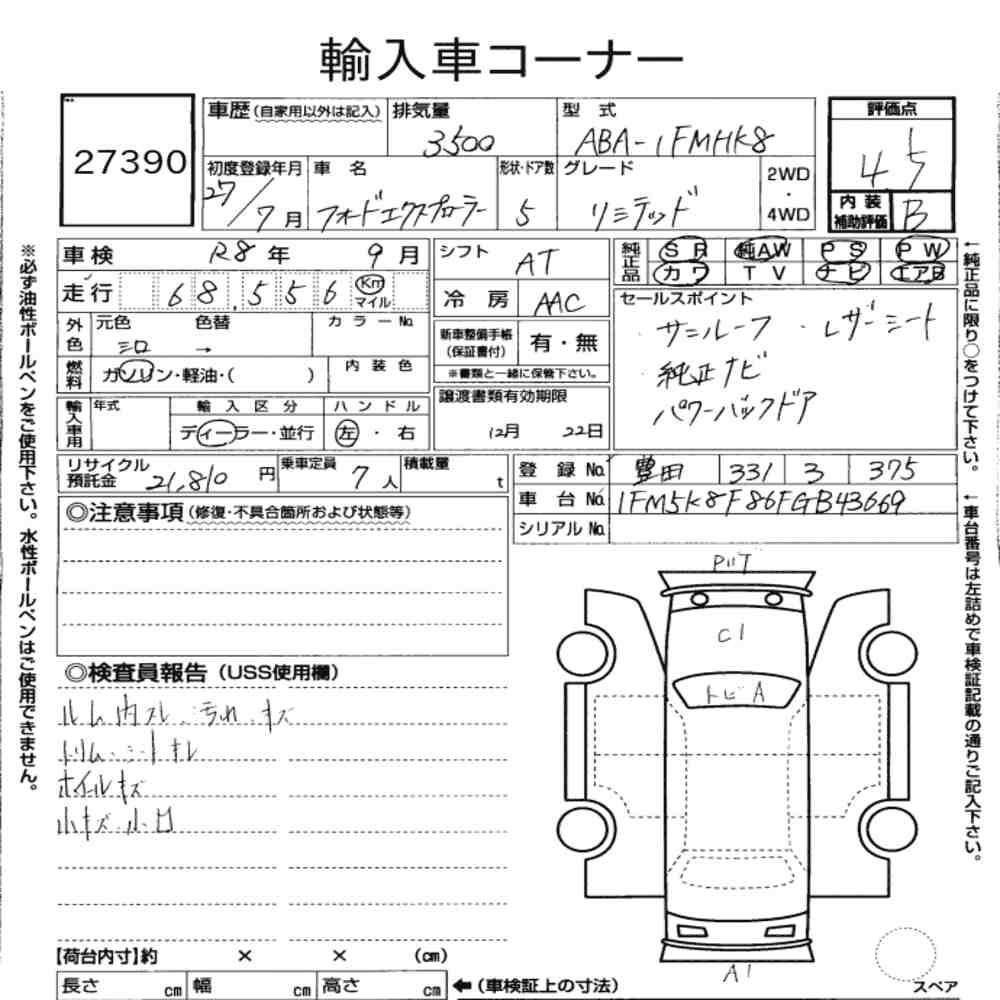 輸入車コーナー
27390
車歴(自家用以外は記入)
排気量 3500
型式 ABA-1FMHK8
評価点 4.5
初度登録年月 27/7月
車名 フォードエクスプローラー
形状・ドア数 5
グレード リミテッド
2WD・4WD
内装補助評価 B
車検 R8年 9月
走行 68,556 Km マイル
外色 元色 シロ 色替 → カラーNo.
燃料 ガソリン・軽油・( ) 内装色
輸入車用 年式 輸入区分 ディーラー・並行 ハンドル 左・右
シフト AT
冷房 AAC
新車整備手帳(保証書付) 有・無
※書類と一緒に保管下さい。
譲渡書類有効期限
12月 22日
純正品 SR 純AW PS PW
カワ TV ナビ エアB
セールスポイント
・サンルーフ ・レザーシート
純正ナビ
パワーバックドア
リサイクル預託金 21,810円
乗車定員 7人
積載量 t
登録No. 豊田 331 ろ 375
車台No. 1FM5K8F86FGB43669
シリアルNo.
◎注意事項(修復・不具合箇所および状態等)
◎検査員報告(USS使用欄)
ルーム内スレ、汚れ、キズ
トリム・シートキレ
ホイールキズ
小キズ、小凹
C1
トビA
A1
【荷台内寸】約 × × (cm)
長さ cm 幅 cm 高さ cm
←(車検証上の寸法)
スペア
※必ず油性ボールペンをご使用下さい。水性ボールペンはご使用できません。
←純正品に限り○をつけて下さい。
←車台番号は左詰めで車検証記載の通りご記入下さい。